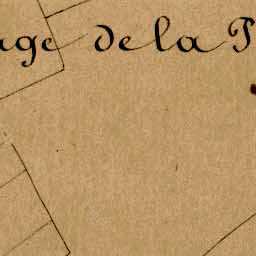 age de la P